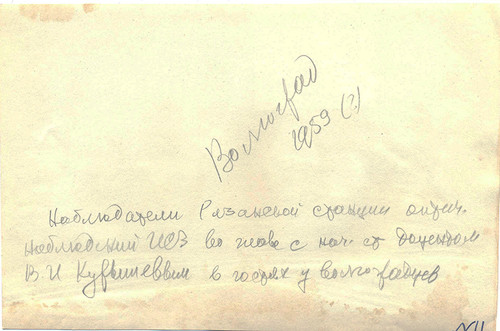 Волгоград
1959 (?)
Наблюдатели Рязанской станции оптич.
наблюдений ИСЗ во главе с нач. ст доцентом
В. И Курышевым в гостях у волгоградцев